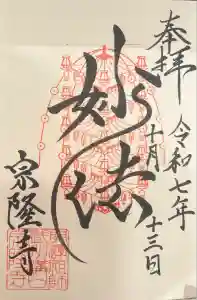 奉拝
令和七年
十月十三日
妙法
宗隆寺